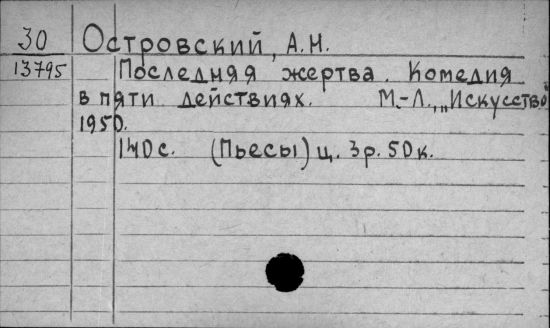 30
13795
Островский, А.Н.
Последняя жертва. Комедия
в пяти действиях. М.-Л., „Искусство"
1950.
140с. (Пьесы) ц. 3р. 50к.